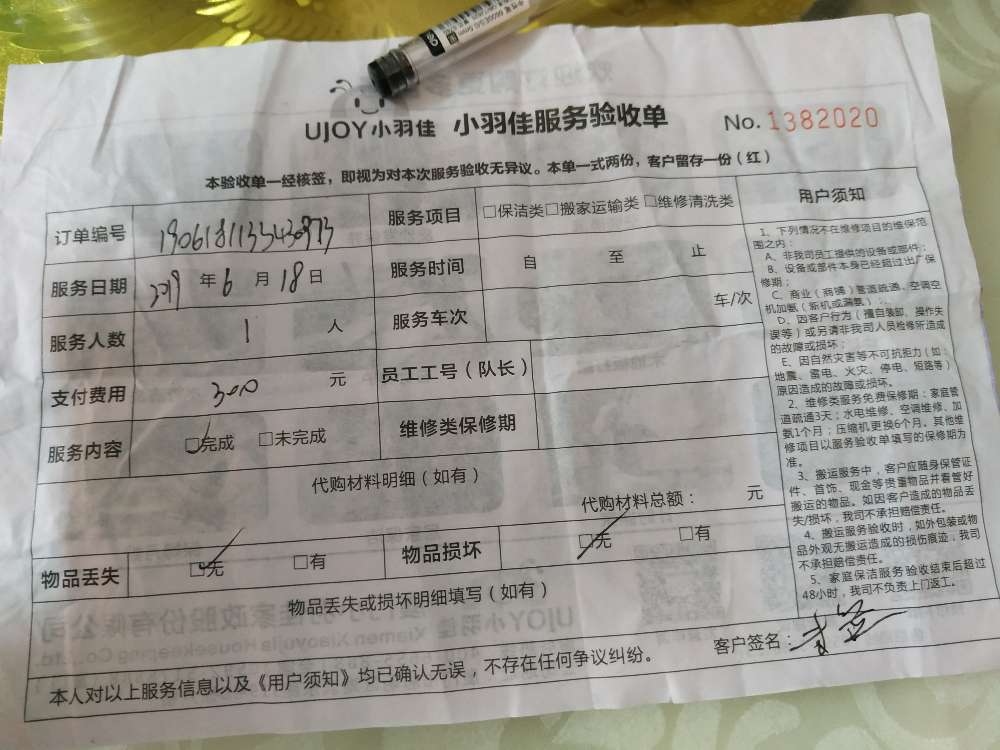 UJOY小羽佳 小羽佳服务验收单 No. 1382020
本验收单一经核签，即视为对本次服务验收无异议。本单一式两份，客户留存一份（红）
订单编号 服务项目 □保洁类□搬家运输类 □维修清洗类
服务日期 2019 年 6 月 18 日 服务时间 自 至 止
服务人数 1 人 服务车次 车/次
支付费用 300 元 员工工号（队长）
服务内容 □完成 □未完成 维修类保修期
代购材料明细（如有）
代购材料总额： 元
物品丢失 □无 □有 物品损坏 □无 □有
物品丢失或损坏明细填写（如有）
客户签名：
本人对以上服务信息以及《用户须知》均已确认无误，不存在任何争议纠纷。
用户须知
1、下列情况不在维修项目的维保范
围之内：
A、非我司员工提供的设备或部件；
B、设备或部件本身已经超过出厂保
修期；
C、商业（商铺）管道疏通、空调空
机加氨（新机或漏氨）；
D、因客户行为（擅自装卸、操作失
误等）或另请非我司人员检修所造成
的故障或损坏；
E、因自然灾害等不可抗拒力（如：
地震、雷电、火灾、停电、短路等）
原因造成的故障或损坏。
2、维修类服务免费保修期：家庭管
道疏通3天；水电维修、空调维修、加
氨1个月；压缩机更换6个月。其他维
修项目以服务验收单填写的保修期为
准。
3、搬运服务中，客户应随身保管证
件、首饰、现金等贵重物品并看管好
搬运的物品。如因客户造成的物品丢
失/损坏，我司不承担赔偿责任。
4、搬运服务验收时，如外包装或物
品外观无搬运造成的损伤痕迹，我司
不承担赔偿责任。
5、家庭保洁服务验收结束后超过
48小时，我司不负责上门返工。